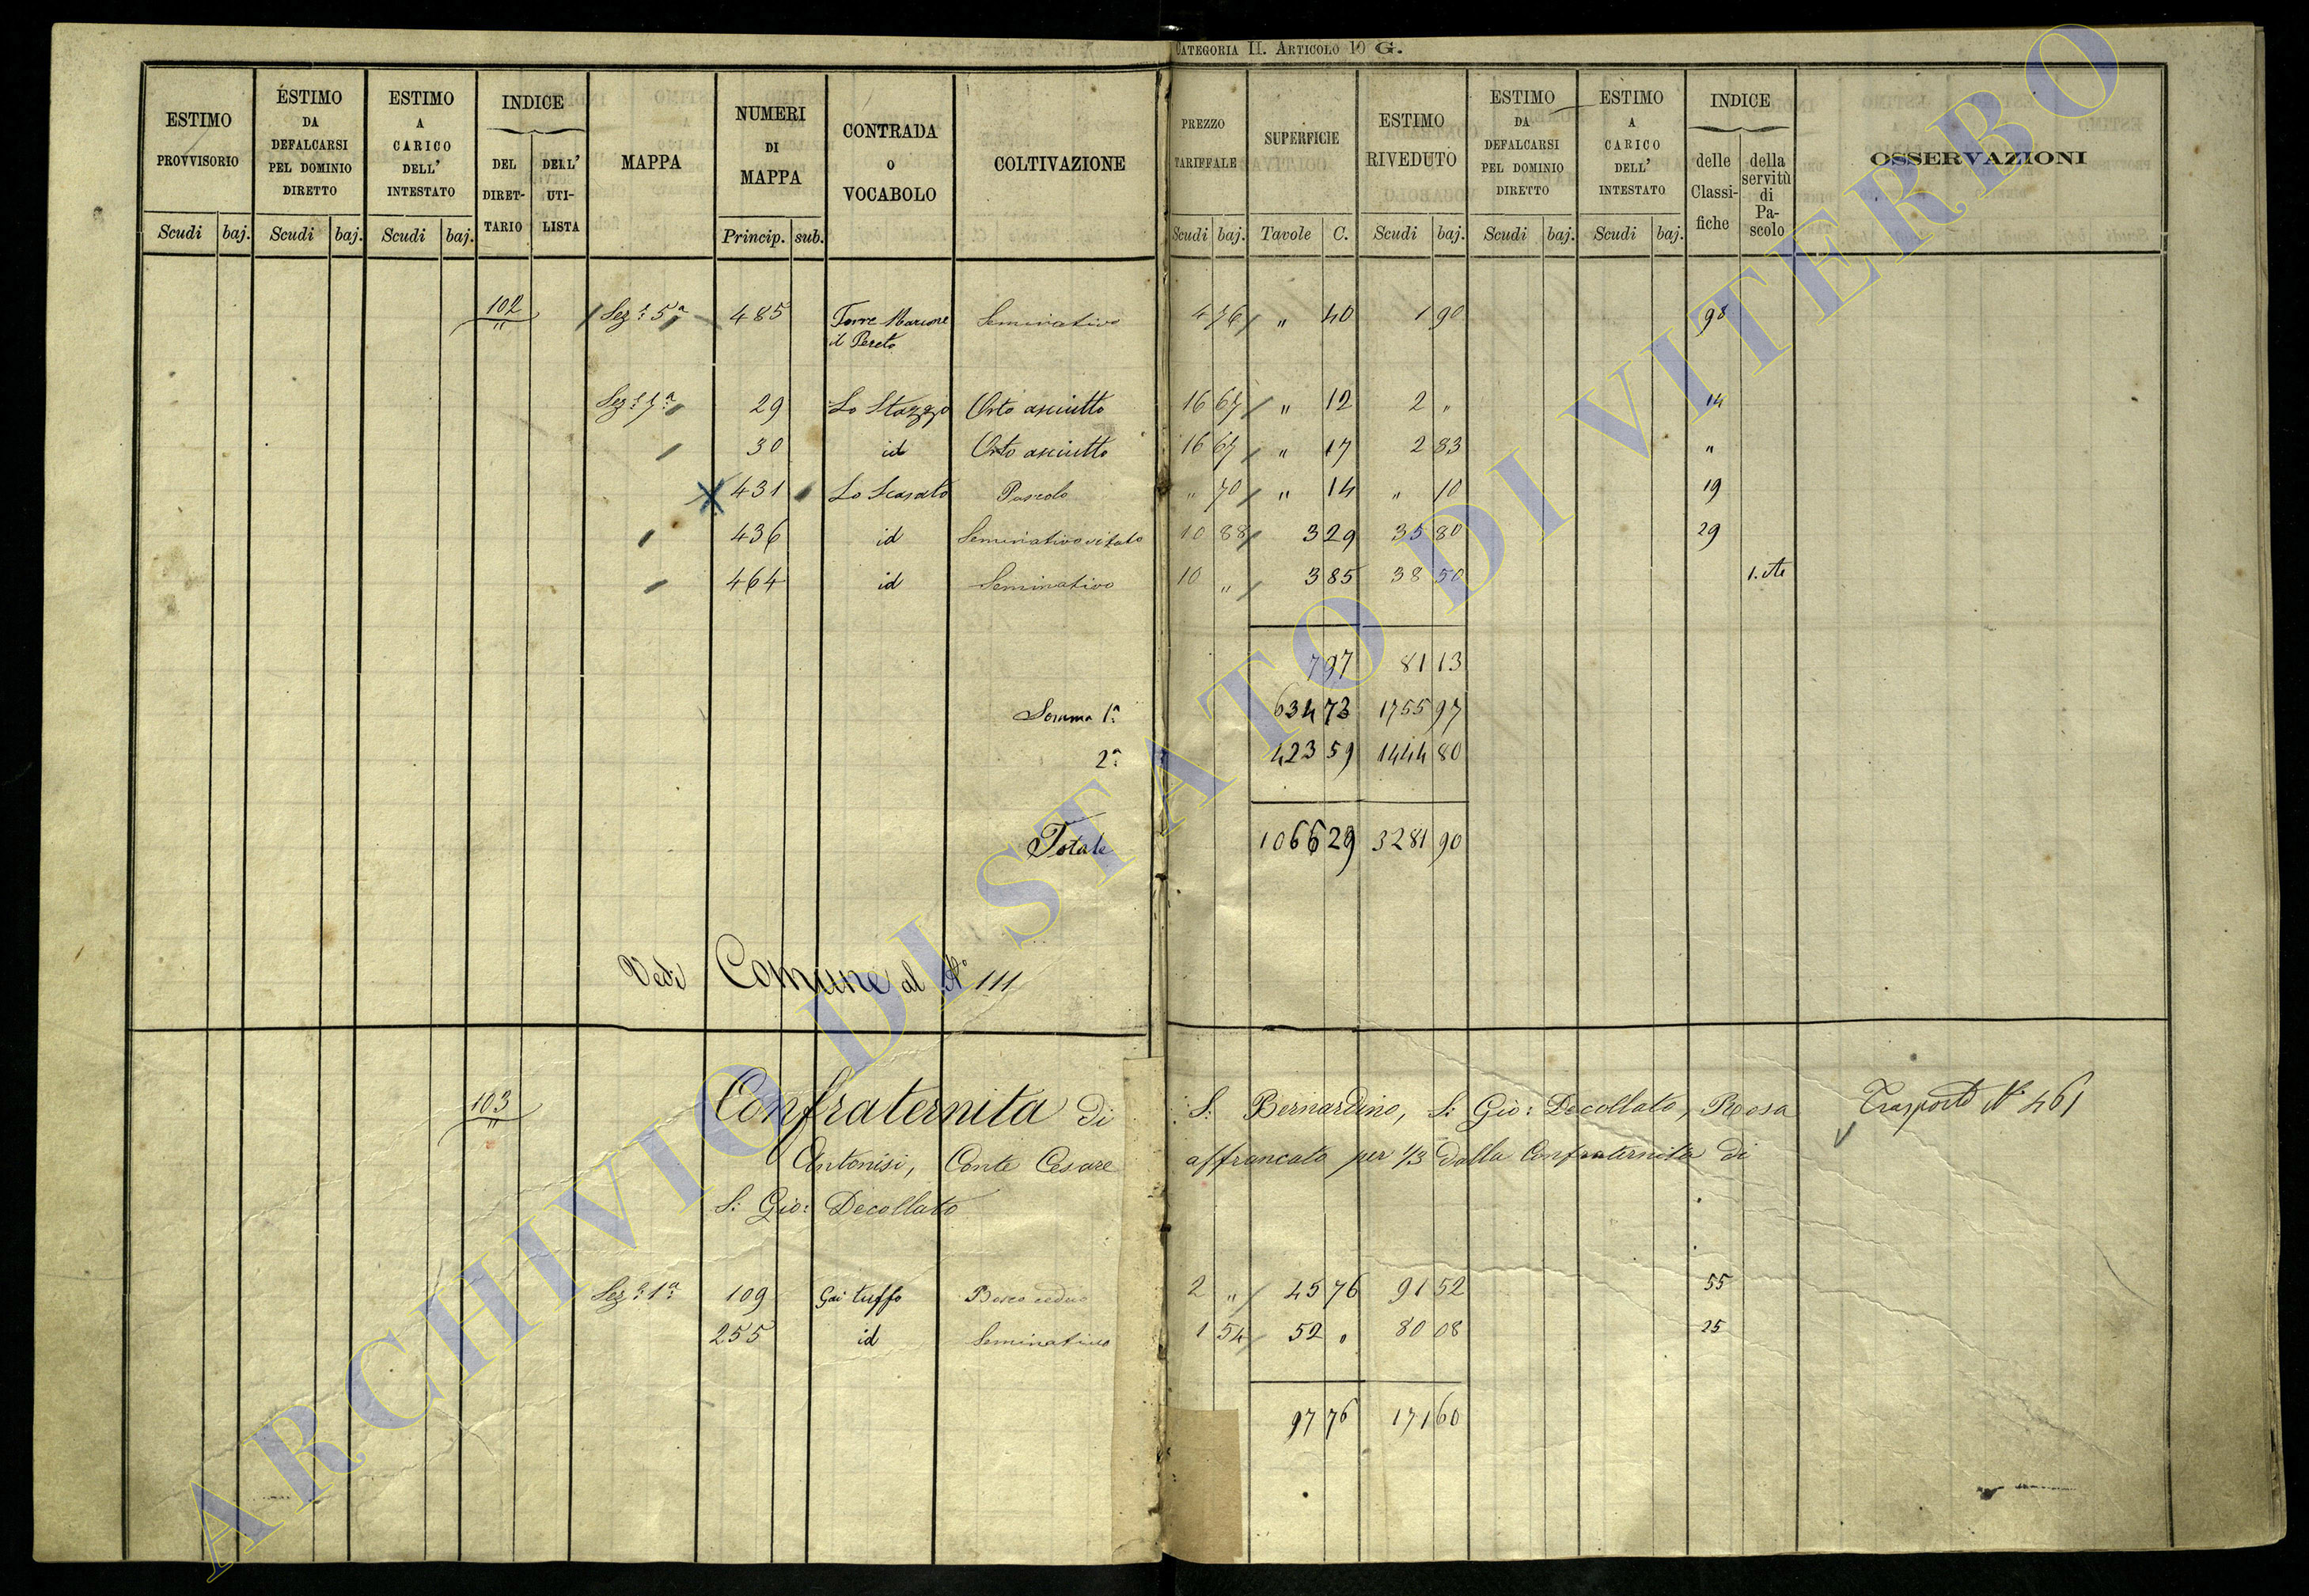 CATEGORIA II. ARTICOLO 10 G.
ESTIMO PROVVISORIO
ESTIMO DA DEFALCARSI PEL DOMINIO DIRETTO
ESTIMO A CARICO DELL' INTESTATO
INDICE
DEL DIRET-TARIO
DELL' UTI-LISTA
MAPPA
NUMERI DI MAPPA
CONTRADA O VOCABOLO
COLTIVAZIONE
PREZZO TARIFFALE
SUPERFICIE
ESTIMO RIVEDUTO
ESTIMO DA DEFALCARSI PEL DOMINIO DIRETTO
ESTIMO A CARICO DELL' INTESTATO
INDICE
delle Classi-fiche
della servitù di Pa-scolo
OSSERVAZIONI
Scudi baj. Scudi baj. Scudi baj. Princip. sub. Scudi baj. Tavole C. Scudi baj. Scudi baj. Scudi baj.
102 Sez.e 5a 485 Torre Marione Seminativo 4 76 " 40 1 90 98
il Pereto
Sez.e 7a 29 Lo Stazzo Orto asciutto 16 67 " 12 2 " 14
30 id Orto asciutto 16 67 " 17 2 83 "
431 Lo Scasato Pascolo " 70 " 14 " 10 19
436 id Seminativo vitato 10 88 3 29 35 80 29
464 id Seminativo 10 " 3 85 38 50
7 97 81 13
Somma 1a 634 73 1755 97
2a 423 59 1444 80
Totale 1066 29 3281 90
Vedi Comune al No 111
103 Confraternita di S: Bernardino, S: Gio: Decollato, Rosa Trasporto No 461
Antonisi, Conte Cesare affrancato per 1/3 dalla Confraternita di
S: Gio: Decollato
Sez.e 1a 109 Gai tuffo Bosco ceduo 2 " 45 76 91 52 55
255 id Seminativo 1 54 52 " 80 08 25
97 76 171 60
ARCHIVIO DI STATO DI VITERBO